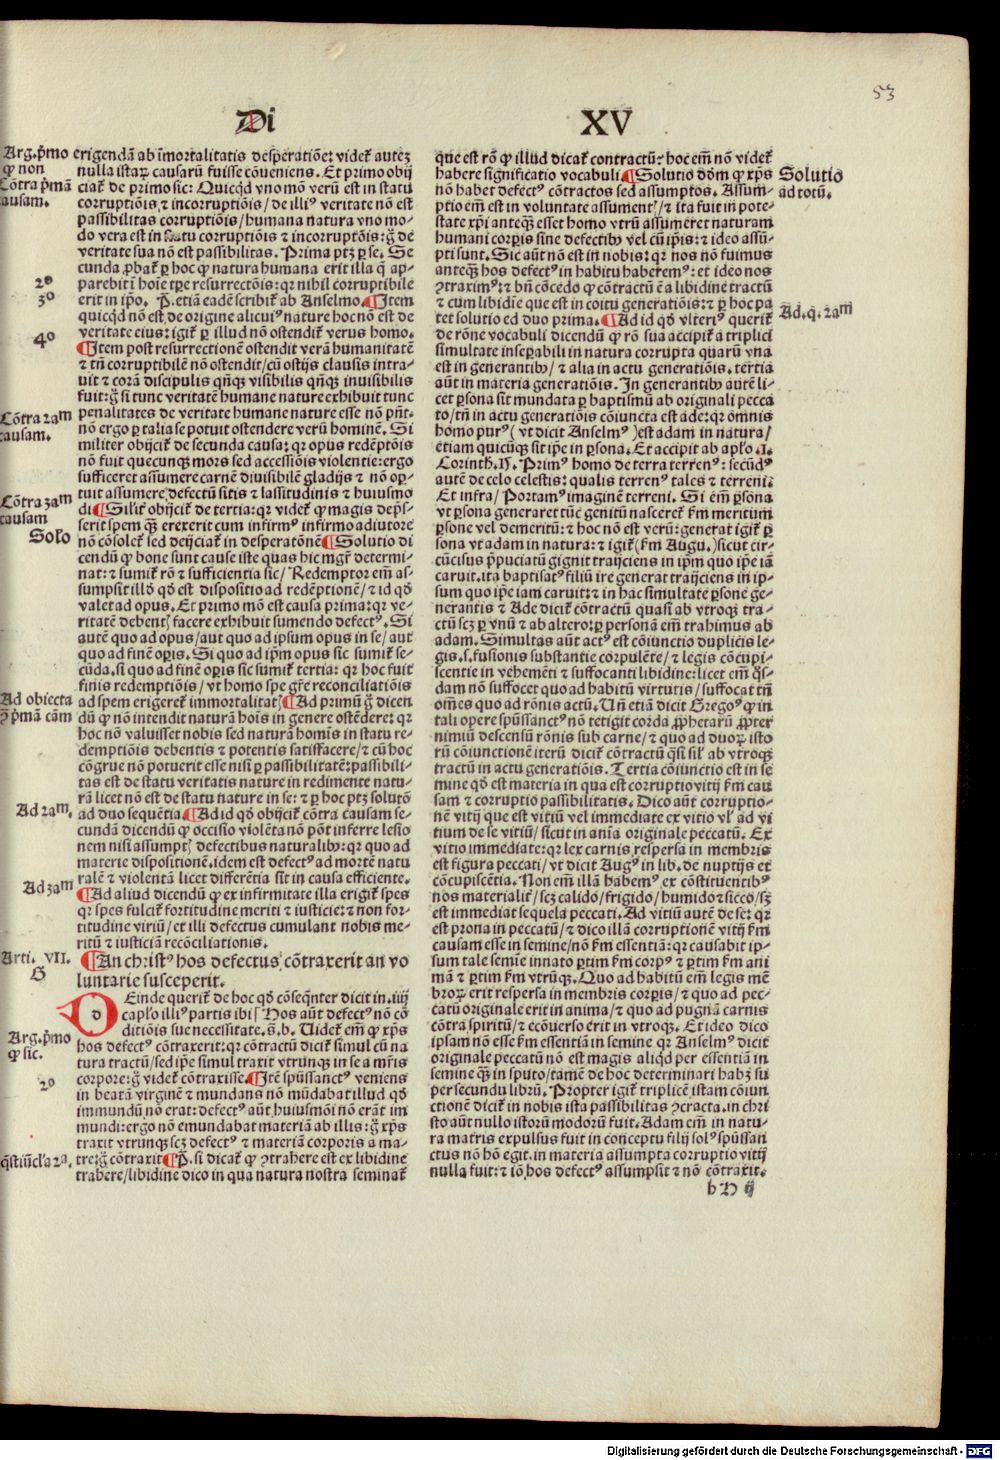 53
Di XV
Arg. p̄mo
q̄ non
Cōtra p̄mā
causam.
2º
3º
4º
Cōtra 2am
causam.
Cōtra 3am
causam
Solō
Ad obiecta
ꝯ̄ p̄mā cām
Ad 2am.
Ad 3am
Arti. VII.
G
Arg. p̄mo
ꝙ sic.
2º
q̄stiūcl'a 2a.
erigendā ab īmortalitatis desperatiōe: videt᷑ autez
nulla istaꝝ causarū fuisse cōueniens. Et primo obij
ciat᷑ de primo sic: Quicqd vno mō verū est in statu
corruptiōis ⁊ incorruptiōis / de illiꝰ veritate nō est
passibilitas corruptiōis / humana natura vno mo-
do vera est in statu corruptiōis ⁊ incorruptōis: g̊ de
veritate sua nō est passibilitas. Prima ptꝫ ꝑ se. Se
cunda ꝓbat᷑ ꝑ hoc ꝙ natura humana erit illa q̄ ap-
parebit ī hoīe tꝑe resurrectōis: qꝛ nihil corruptibile
erit in ip̄o. P̄. etiā eadē scribit᷑ ab Anselmo. ¶ Item
quicqd nō est de origine alicuiꝰ nature hoc nō est de
veritate eius: igit᷑ ꝑ illud nō ostendit᷑ verus homo.
¶ Item post resurrectionē ostendit verā humanitatē
⁊ tn̄ corruptibilē nō ostendit / cū ostijs clausis intra-
uit ⁊ corā discipulis qn̄qꝫ visibilis qn̄qꝫ inuisibilis
fuit: g̊ si tunc veritatē humane nature exhibuit tunc
penalitates de veritate humane nature esse nō pn̄t.
nō ergo ꝑ talia se potuit ostendere verū hominē. Si
militer obijcit᷑ de secunda causa: qꝛ opus redēptōis
nō fuit quecunqꝫ mors sed accessiōis violentie: ergo
sufficeret assumere carnē diuisibilē gladijs ⁊ nō opꝛ-
tuit assumere defectū sitis ⁊ lassitudinis ⁊ huiusmo
di. ¶ Silit᷑ obijcit᷑ de tertia: qꝛ videt᷑ ꝙ magis dep̄s-
serit spem qꝫ̄ erexerit cum infirmꝰ infirmo adiutore
nō cōsolet᷑ sed deijciat᷑ in desperatōnē ¶ Solutio di
cendū ꝙ bone sunt cause iste quas hic mg̊r determi-
nat: ⁊ sumit᷑ rō ⁊ sufficientia sic / Redemptoꝛ em̄ as-
sumpsit illō qd̄ est dispositio ad redēptionē / ⁊ id qd̄
valet ad opus. Et primo mō est causa prima: qꝛ ve-
ritatē debentꝭ facere exhibuit sumendo defectꝰ. Si
autē quo ad opus / aut quo ad ipsum opus in se / aut
quo ad finē oꝑis. Si quo ad ip̄m opus sic sumit᷑ se-
cūda. si quo ad finē oꝑis sic sumit᷑ tertia: qꝛ hoc fuit
finis redemptiōis / vt homo spe gr̄e reconciliatiōis
ad spem erigeret᷑ immortalitatꝭ ¶ Ad primū g̊ dicen
dū ꝙ nō intendit naturā hoīs in genere ostēdere: qꝛ
hoc nō valuisset nobis sed naturā homīs in statu re-
demptiōis debentis ⁊ potentis satisfacere / ⁊ cū hoc
cōgrue nō potuerit esse nisi ꝑ passibilitatē: passibili-
tas est de statu veritatis nature in redimente natu-
rā licet nō est de statu nature in se: ⁊ ꝑ hoc ptꝫ solutō
ad duo sequētia. ¶ Ad id qd̄ obijcit᷑ cōtra causam se-
cundā dicendū ꝙ occisio violēta nō pōt inferre lesio
nem nisi assumptꝭ defectibus naturalibꝰ: qꝛ quo ad
materie dispositionē. idem est defectꝰ ad mortē natu
ralē ⁊ violentā licet differētia sit in causa efficiente.
¶ Ad aliud dicendū ꝙ ex infirmitate illa erigit᷑ spes
qꝛ spes fulcit᷑ fortitudine meriti ⁊ iusticie: ⁊ non for-
titudine viriū / et illi defectus cumulant nobis me-
ritū ⁊ iusticiā recōciliationis.
¶ An christꝰ hos defectus cōtraxerit an vo
luntarie susceperit.
DEinde querit᷑ de hoc qd̄ cōseqn̄ter dicit in. iiij
capl'o illiꝰ partis ibi / Hos aūt defectꝰ nō cō
ditiōis sue necessitate. ⁊c̄. Uidet᷑ em̄ ꝙ xp̄s
hos defectꝰ cōtraxerit: qꝛ cōtractū dicit᷑ simul cū na
tura tractū / sed ip̄e simul traxit vtrunqꝫ in se a mr̄is
corpore: g̊ videt᷑ cōtraxisse. ¶ Itē sp̄ussanctꝰ veniens
in beatā virginē ⁊ mundans nō mūdabat illud qd̄
immundū nō erat: defectꝰ aūt huiusmōi nō erāt im
mundi: ergo nō emundabat materiā ab illis: g̊ xp̄s
traxit vtrunqꝫ scꝫ defectꝰ ⁊ materiā corporis a ma-
tre: g̊ cōtraxit ¶ P̄. si dicat᷑ ꝙ ꝯtrahere est ex libidine
trahere / libidine dico in qua natura nostra seminat᷑
que est rō ꝙ illud dicat᷑ contractū: hoc em̄ nō videt᷑
habere significatio vocabuli. ¶ Solutio dōm ꝙ xp̄s
nō habet defectꝰ cōtractos sed assumptos. Assum-
ptio em̄ est in voluntate assumentꝭ / ⁊ ita fuit in pote-
state xp̄i anteqꝫ̄ esset homo vtrū assumeret naturam
humani corꝑis sine defectibꝰ vel cū ip̄is: ⁊ ideo assū-
pti sunt. Sic aūt nō est in nobis: qꝛ nos nō fuimus
anteqꝫ̄ hos defectꝰ in habitu haberemꝰ: et ideo nos
ꝯtraximꝰ: ⁊ bn̄ cōcedo ꝙ contractū ē a libidine tractū
⁊ cum libidīe que est in coitu generatiōis: ⁊ ꝑ hoc pa
tet solutio ed duo prima. ¶ Ad id qd̄ vlteriꝰ querit᷑
de rōne vocabuli dicendū ꝙ rō sua accipit᷑ a triplici
simultate inseꝑabili in natura corrupta quarū vna
est in generantibꝰ / ⁊ alia in actu generatiōis. tertia
aūt in materia generatiōis. In generantibꝰ autē li-
cet ꝑsona sit mundata ꝑ baptismū ab originali pecca
to / tn̄ in actu generatiōis cōiuncta est ade: qꝛ omnis
homo purꝰ (vt dicit Anselmꝰ) est adam in natura /
etiam quicūqꝫ sit ip̄e in ꝑsona. Et accipit ab apl'o. I.
Corinth. 15. Primꝰ homo de terra terrenꝰ: secūdꝰ
autē de celo celestis: qualis terrenꝰ tales ⁊ terreni:
Et infra / Portamꝰ imaginē terreni. Si em̄ ꝑsona
vt ꝑsona generaret tūc genitū nasceret᷑ ẜm meritum
ꝑsone vel demeritū: ⁊ hoc nō est verū: generat igit᷑ ꝑ
sona vt adam in natura: ⁊ igit᷑ (ẜm Augu.) sicut cir-
cūcisus p̄puciatū gignit traijciens in ip̄m quo ip̄e iā
caruit. ita baptisatꝰ filiū ire generat traijciens in ip-
sum quo ip̄e iam caruit: ⁊ in hac simultate ꝑsone ge-
nerantis ⁊ Ade dicit᷑ cōtractū quasi ab vtroqꝫ tra-
ctū scꝫ ꝑ vnū ⁊ ab altero: ꝑ personā em̄ trahimus ab
adam. Simultas aūt actꝰ est cōiunctio duplicis le-
gis. s. fusionis substantie corpulēte / ⁊ legis cōcupi-
scentie in vehemēti ⁊ suffocanti libidine: licet em̄ qͣs-
dam nō suffocet quo ad habitū virtutis / suffocat tn̄
om̄es quo ad rōnis actū. Un̄ etiā dicit Gregoꝰ ꝙ in
tali opere sp̄ussanctꝰ nō tetigit corda ꝓphetarū ꝓpter
nimiū descensū rōnis sub carne / ⁊ quo ad duoꝝ isto
rū cōiunctionē iterū dicit᷑ cōtractū qͣsi sil' ab vtroqꝫ
tractū in actu generatiōis. Tertia cōiunctio est in se
mine qd̄ est materia in qua est corruptio vitij ẜm cau
sam ⁊ corruptio passibilitatis. Dico aūt corruptio-
nē vitij que est vitiū vel immediate ex vitio vl' ad vi
tium de se vitiū / sicut in aīa originale peccatū. Ex
vitio immediate: qꝛ lex carnis respersa in membris
est figura peccati / vt dicit Augꝰ in lib. de nuptijs et
cōcupiscētia. Non em̄ illā habemꝰ ex cōstituentibꝰ
nos materialit᷑ / scꝫ calido / frigido / humido ⁊ sicco / sꝫ
est immediat᷑ sequela peccati. Ad vitiū autē de se: qꝛ
est prona in peccatū / ⁊ dico illā corruptionē vitij ẜm
causam esse in semine / nō ẜm essentiā: qꝛ causabit ip-
sum tale semie innato ꝑtim ẜm corpꝰ ⁊ ꝑtim ẜm ani
mā ⁊ ꝑtim ẜm vtrūqꝫ. Quo ad habitū em̄ legis mē
broꝝ erit respersa in membris corꝑis / ⁊ quo ad pec-
catū originale erit in anima / ⁊ quo ad pugnā carnis
cōtra spiritū / ⁊ ecōuerso erit in vtroqꝫ. Et ideo dico
ipsam nō esse ẜm essentiā in semine qꝛ Anselmꝰ dicit
originale peccatū nō est magis aliqd per essentiā in
semine qꝫ̄ in sputo / tamē de hoc determinari habꝫ su
per secundū librū. Propter igit᷑ triplicē istam cōiun
ctionē dicit᷑ in nobis ista passibilitas ꝯtracta. in chri
sto aūt nullo istorū modorū fuit. Adam em̄ in natu-
ra matris expulsus fuit in conceptu filij solꝰ sp̄ussan
ctus nō hō egit. in materia assumpta corruptio vitij
nulla fuit: ⁊ iō hos defectꝰ assumpsit ⁊ nō cōtraxit.
Solutio
ad totū.
Ad. q. 2am
b D ij
Digitalisierung gefördert durch die Deutsche Forschungsgemeinschaft - DFG